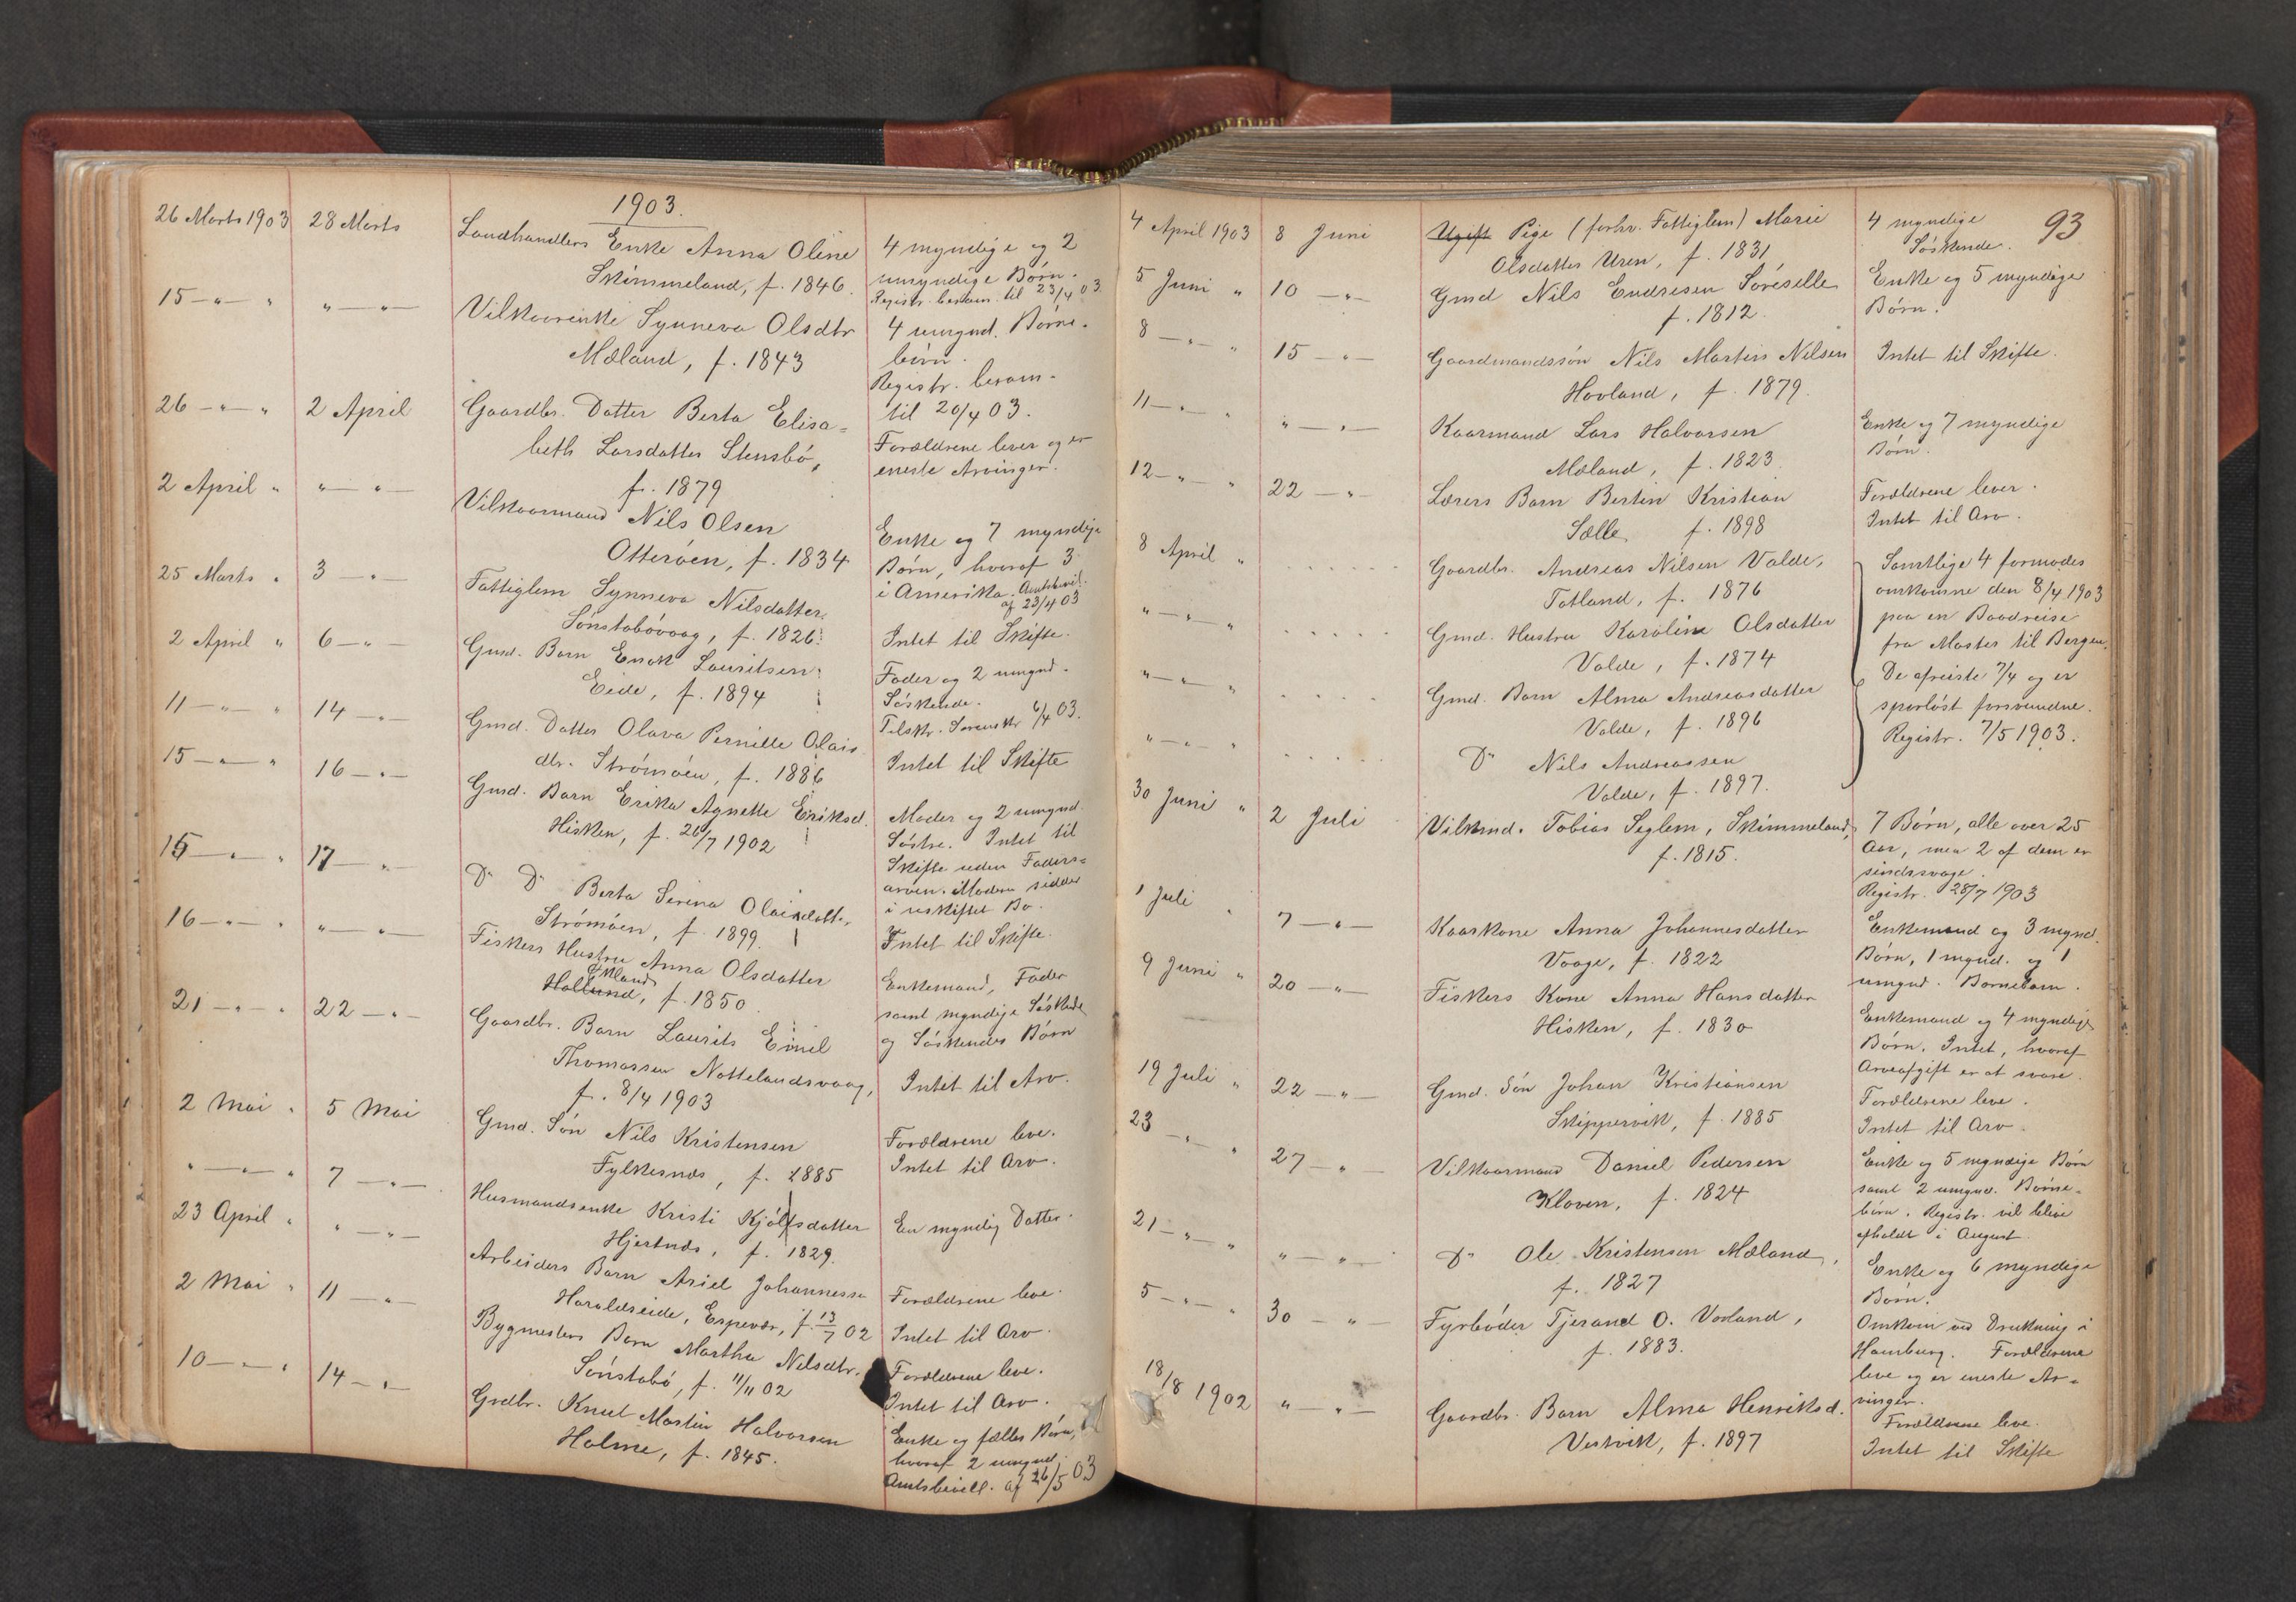 1903.
26 Marts 1903 28 Marts Landhandlers Enke Anna Oline 4 myndige og 2
Skimmeland, f. 1846. umyndige Børn.
Registr. beram. til 23/4 03.
15 — " — " " — " — Vilkaarenke Synneva Olsdtr 4 umynd. Børne-
Mæland, f. 1843 børn.
Registr. beram-
til 20/4 03.
26 — " — " 2 April Gaardbr. Datter Berta Elisa- Forældrene lever og er
beth Larsdatter Stensbø, eneste Arvinger.
f. 1879
2 April " " — " — Vilkaarmand Nils Olsen Enke og 7 myndige
Otterøen, f. 1834 Børn, hvoraf 3
i Amerika. Amtsbevil.
af 23/4 03
25 Marts " 3 — " — Fattiglem Synneva Nilsdatter Intet til Skifte.
Sønstabøvaag, f. 1826.
2 April " 6 — " — Gmd. Barn Enok Lauritsen Fader og 2 umynd.
Eide, f. 1894 Søskende.
Tilskr. Sorenskr 6/4 03.
11 — " — " 14 — " — Gmd. Datter Olava Pernille Olais Intet til Skifte
dtr. Strømøen, f. 1886
15 — " — " 16 — " — Gmd. Barn Erika Agnette Eriksd. Moder og 2 umynd.
Hisken, f. 26/7 1902 Søstre. Intet til
Skifte uden Faders-
arven. Modern sidder
i uskiftet Bo.
15 — " — " 17 — " — Do Do Berta Serina Olaisdatt. Intet til Skifte.
Strømøen, f. 1899.
16 — " — " " — " — Fiskers Hustru Anna Olsdatter Enkemand, Fader
Hallund, f. 1850 samt myndige Søskende
og Søskendes Børn
21 — " — " 22 — " — Gaardbr. Barn Laurits Emil Intet til Arv.
Thomassen Nottelandsvaag,
f. 8/4 1903
2 Mai " 5 Mai Gmd. Søn Nils Kristensen Forældrene leve.
Fylkesnes, f. 1885 Intet til Arv.
" — " — " 7 — " — Husmandsenke Kristi Kjølfsdatter En myndig Datter.
Hjertnes, f. 1829.
23 April " " — " — Arbeiders Barn Ariel Johannessen Forældrene leve.
Haraldseide, Espevær, f. 13/7 02 Intet til Arv.
2 Mai " 11 — " — Bygmesters Barn Martha Nilsdtr. Forældrene leve.
Sønstabø, f. 11/11 02 Intet til Arv.
10 — " — " 14 — " — Grdbr. Knut Martin Halvorsen Enke og fælles Børn,
Holme, f. 1845. hvoraf 2 umynd.
Amtsbevill. af 26/5 03
93
4 April 1903 8 Juni Ugift Pige (forhv. Fattiglem) Marie 4 myndige
Olsdatter Uren, f. 1831, Søskende.
5 Juni " 10 — " — Gmd Nils Endresen Søreselle Enke og 5 myndige
f. 1812. Børn.
8 — " — " 15 — " — Gaardmandssøn Nils Martin Nilsen Intet til Skifte.
Hovland, f. 1879.
11 — " — " " — " — Kaarmand Lars Halvorsen Enke og 7 myndige
Mæland, f. 1823. Børn.
12 — " — " 22 — " — Lærers Barn Bertin Kristian Forældrene lever.
Sælle, f. 1898 Intet til Arv.
8 April " . . . . . Gaardbr. Andreas Nilsen Valde, Samtlige 4 formodes
Totland, f. 1876 omkomne den 8/4 1903
" — " — " . . . . . Gmd. Hustru Karoline Olsdatter paa en Baadreise
Valde, f. 1874 fra Moster til Bergen.
" — " — " . . . . Gmd. Barn Alma Andreasdatter De afreiste 7/4 og er
Valde, f. 1896 sporløst forsvundne.
" — " — " . . . . . Do Nils Andreassen Registr. 7/5 1903.
Valde, f. 1897.
30 Juni " 2 Juli Vilkmd. Tobias Seglem, Skimmeland, 7 Børn, alle over 25
f. 1815. Aar, men 2 af dem er
sindssvage.
Registr. 28/7 1903
1 Juli " 7 — " — Kaarkone Anna Johannesdatter Enkemand og 3 mynd.
Vaage, f. 1822 Børn, 1 mynd. og 1
umynd. Barnebarn.
9 Juni " 20 — " — Fiskers Kone Anna Hansdatter Enkemand og 4 myndige
Hisken, f. 1830 Børn. Intet, hvoraf
Arveafgift er at svare.
19 Juli " 22 — " — Gmd. Søn Johan Kristiansen Forældrene leve.
Skippervik, f. 1885 Intet til Arv.
23 — " — " 27 — " — Vilkaarmand Daniel Pedersen Enke og 5 myndige Børn
Kloven, f. 1824 samt 2 umynd. Børne-
børn. Registr. vil blive
afholdt i August.
21 — " — " " — " — Do Ole Kristensen Mæland, Enke og 6 myndige
f. 1827 Børn.
5 — " — " 30 — " — Fyrbøder Tjerand O. Vorland, Omkom ved Drukning i
f. 1883. Hamburg. Forældrene
leve og er eneste Ar-
vinger.
18/8 1902 " — " — Gaardbr. Barn Alma Henriksd. Forældrene leve.
Vestvik, f. 1897 Intet til Skifte